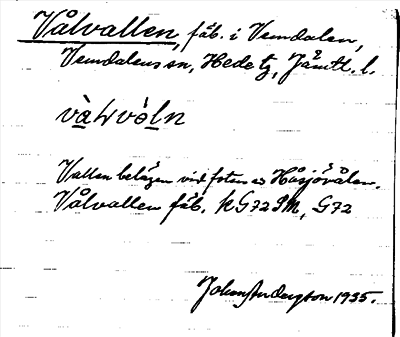 Vålvallen, fäb. i Vemdalen,
Vemdalens sn, Hede tg, Jämtl. l.
vàLvòln
Vallen belägen vid foten av Håsjövålen.
Vålvallen fäb. kG72SM, G72
John Anderzon 1935.